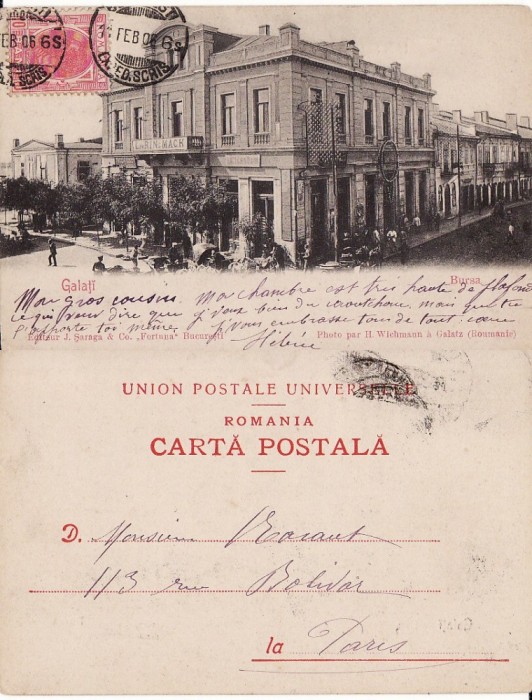 FEB 06 6S
FEB 06 6S
EXPED. SCRIS.
MACK
Galați
Bursa
Mon gros cousin. Ma chambre est très haute de plafond
ce qui veut dire que j'veux bien du caoutchouc, mais que tu
l'apporte toi même. J'vous embrasse tous de tout cœur
Editeur J. Saraga & Co. „Fortuna" București
Photo par H. Wichmann à Galatz (Roumanie)
Hélène
UNION POSTALE UNIVERSELLE
ROMANIA
CARTĂ POSTALĂ
D. Monsieur
113 rue Bolivar
la Paris